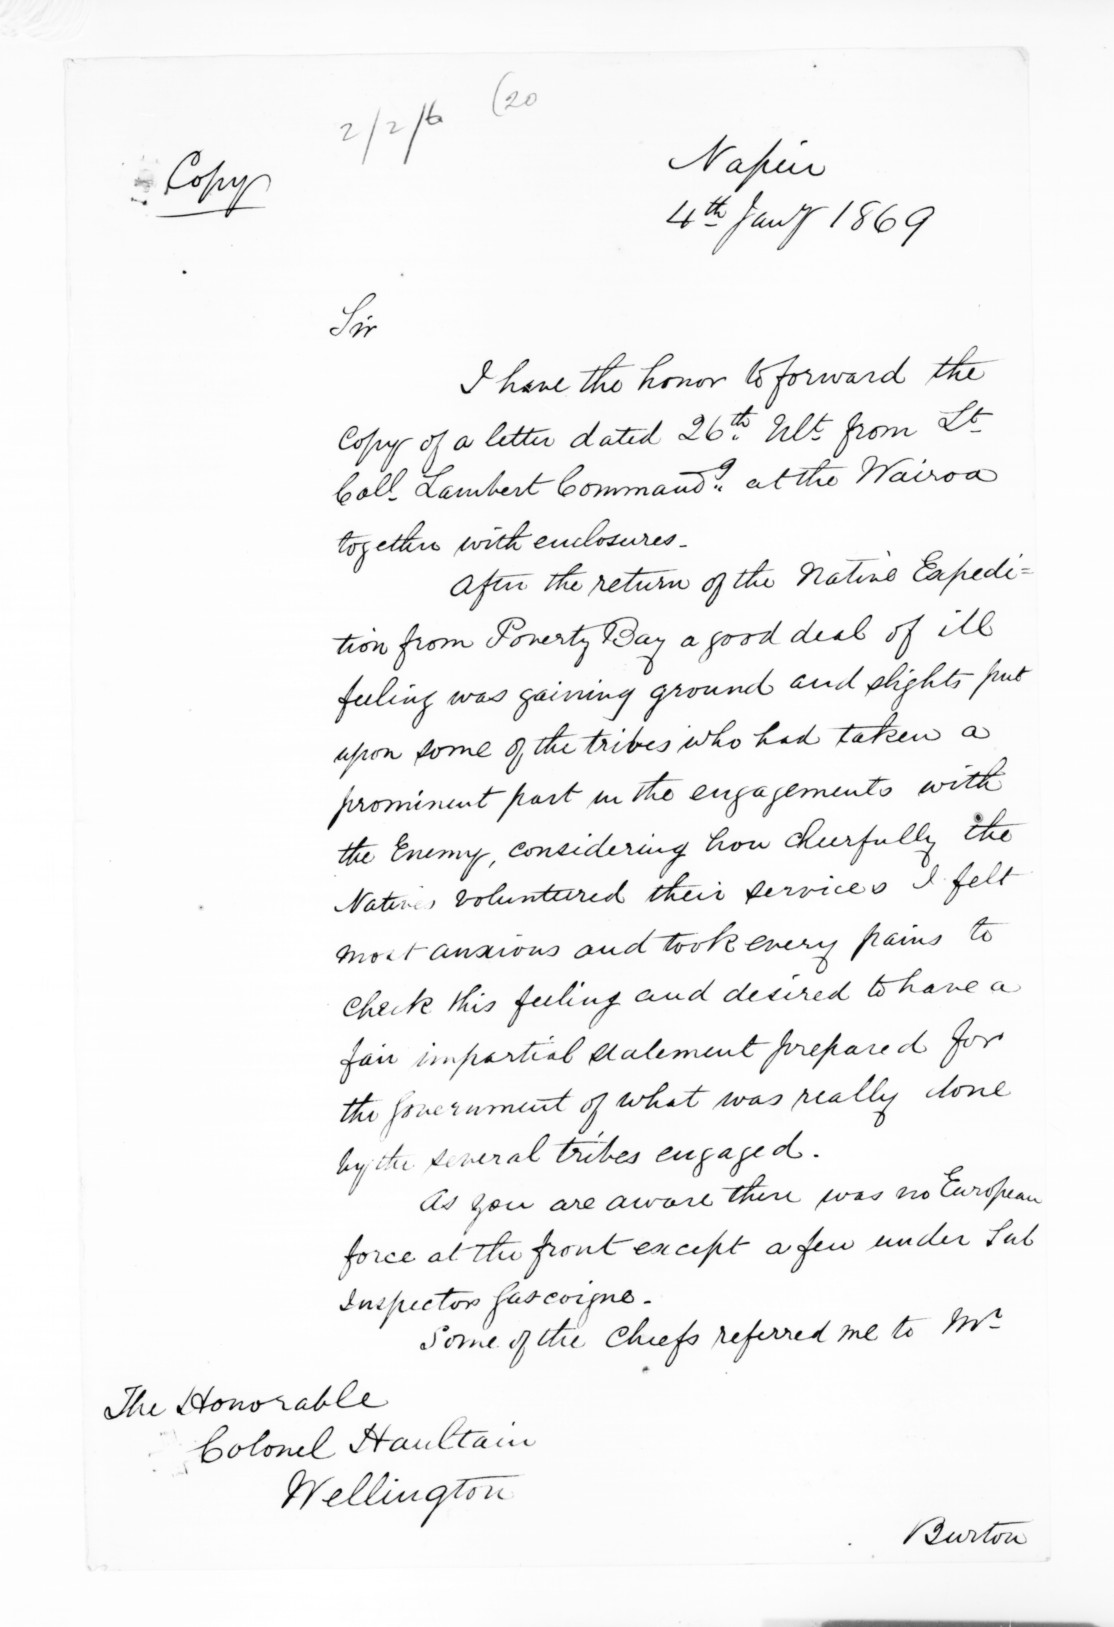 2/2/6 (20
Copy
Napier
4th Jany 1869
Sir
I have the honor to forward the
Copy of a letter dated 26th Ult from Lt
Coll. Lambert Commandg. at the Wairoa
together with enclosures.
After the return of the Native Expedi=
tion from Poverty Bay a good deal of ill
feeling was gaining ground and slights put
upon some of the tribes who had taken a
prominent part in the engagements with
the Enemy, considering how cheerfully the
Natives voluntured their services I felt
most anxious and took every pains to
check this feeling and desired to have a
fair impartial statement prepared for
the Government of what was really done
by the several tribes engaged.
As you are aware there was no European
force at the front except a few under Sub
Inspector Gascoigne.
Some of the Chiefs referred me to Mr
The Honorable
Colonel Haultain
Wellington
Burton